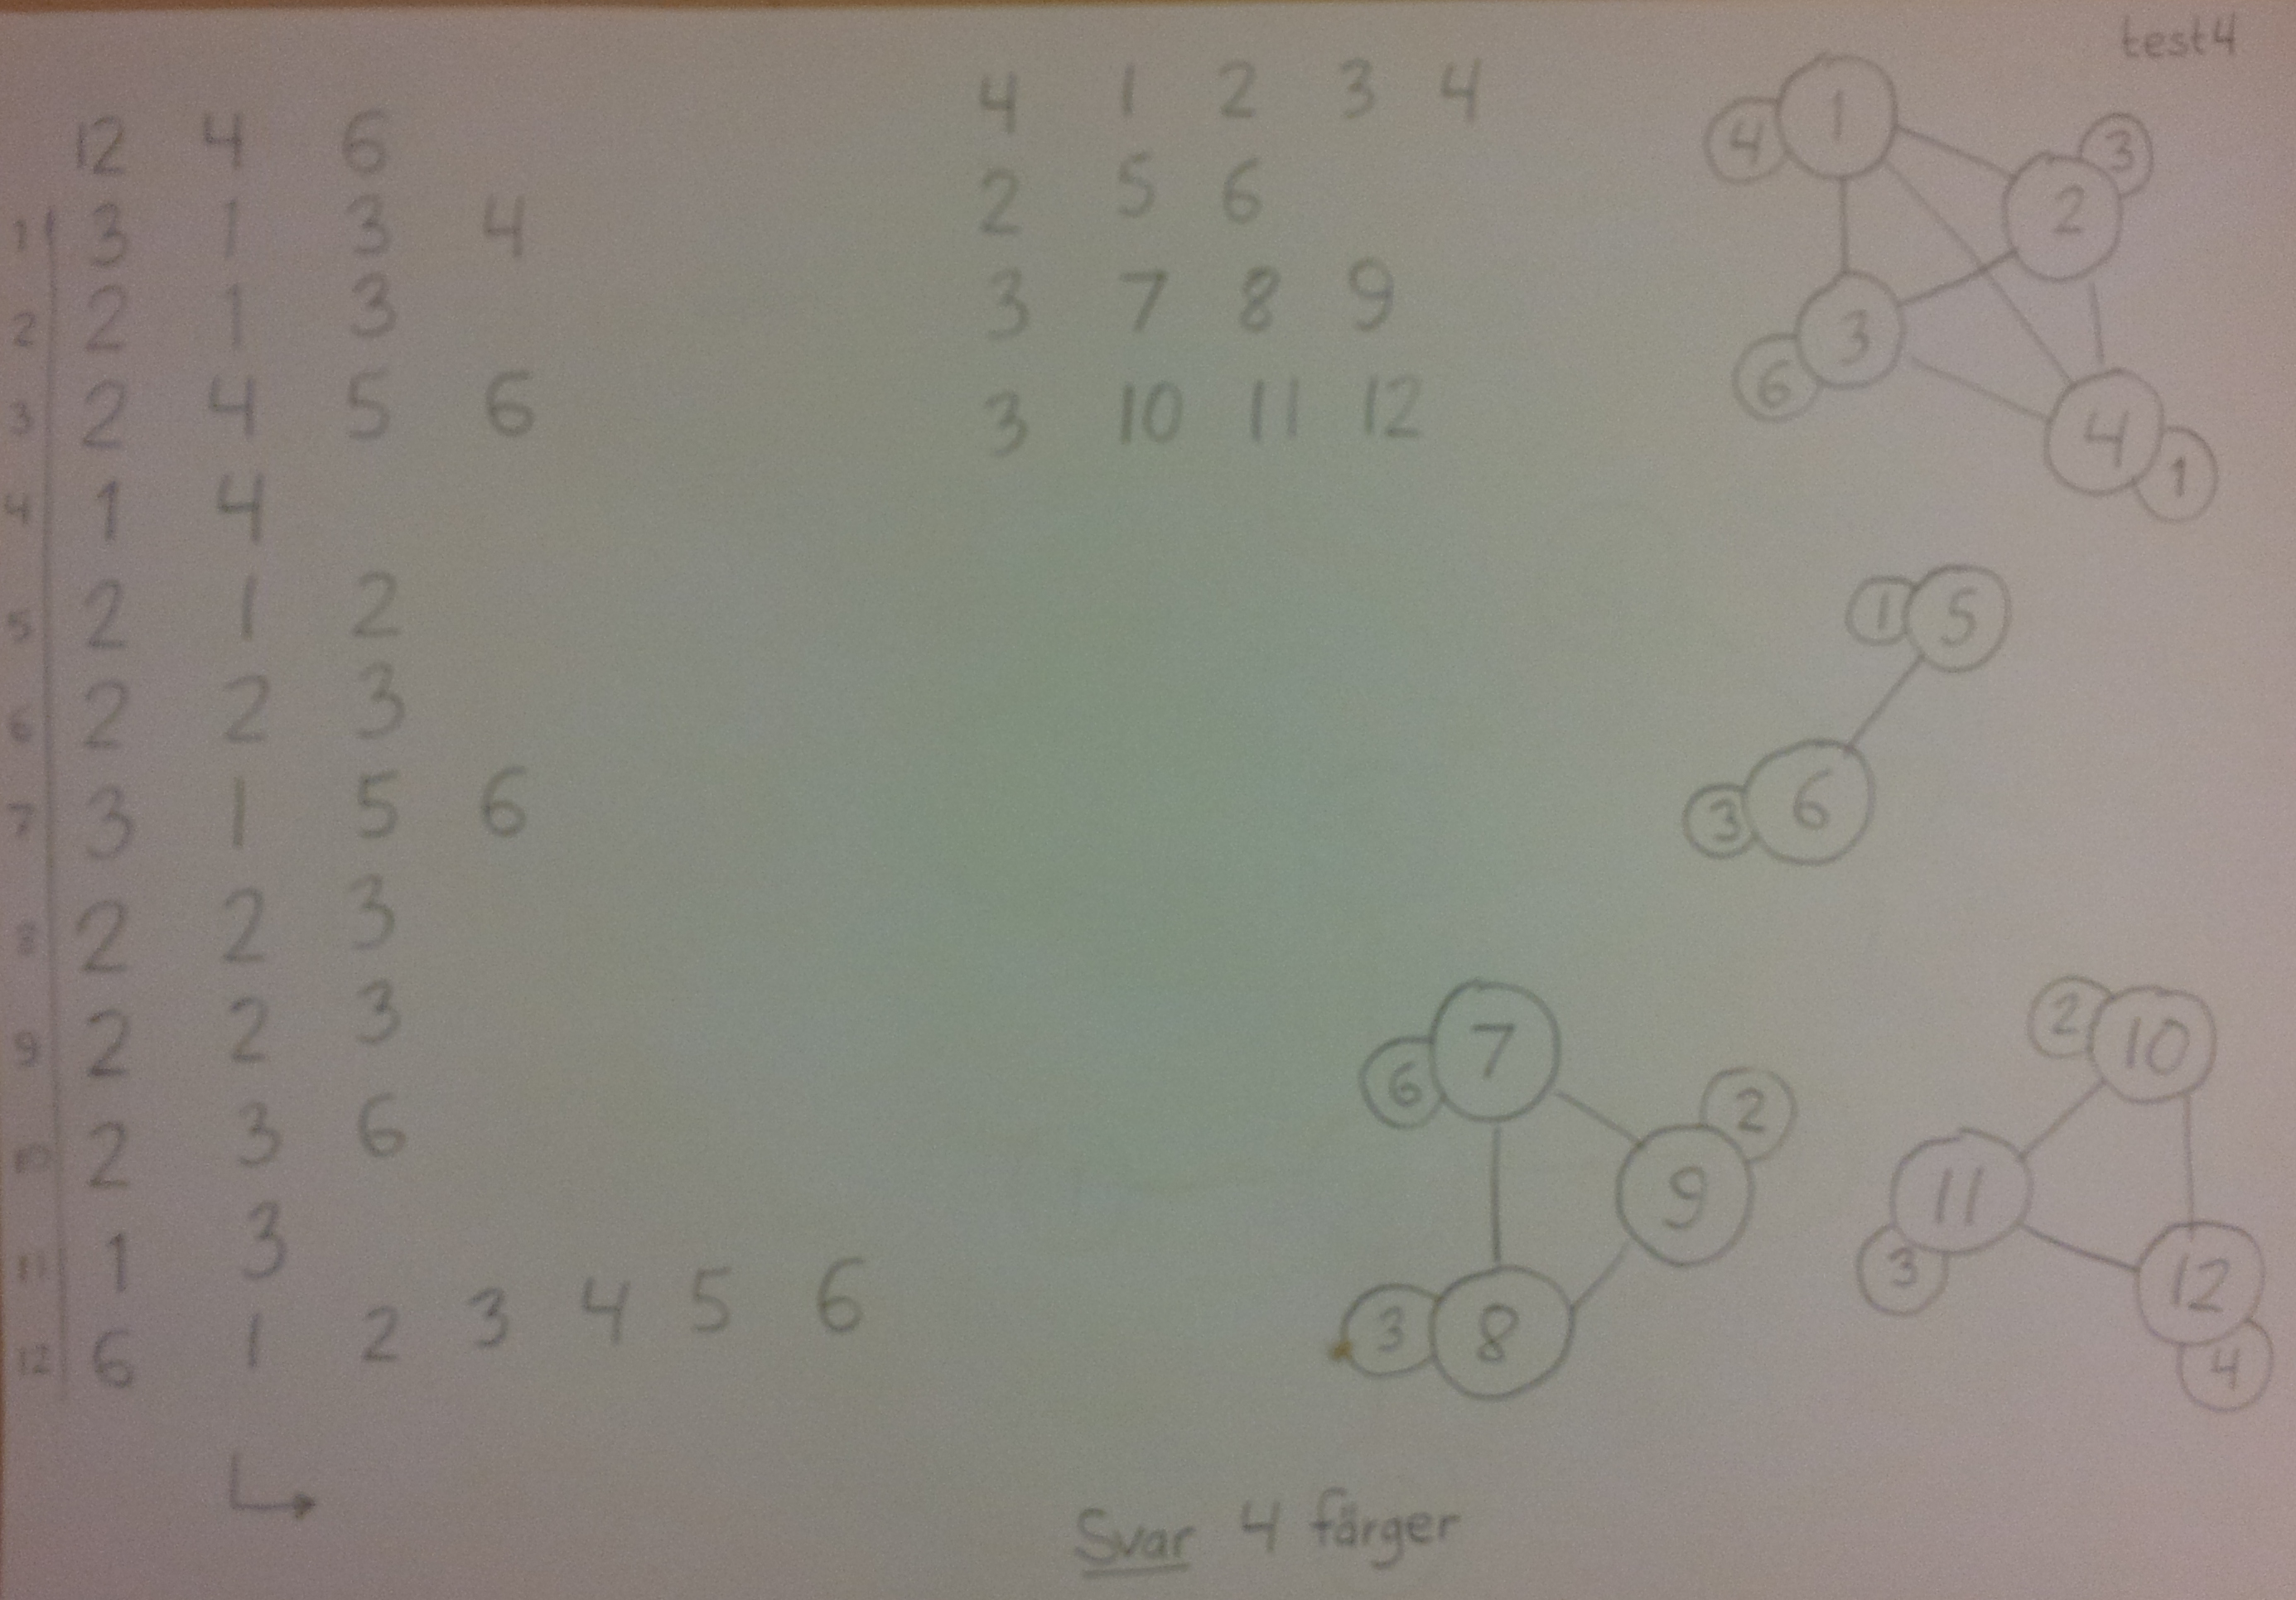 test4
12 4 6
1 3 1 3 4
2 2 1 3
3 2 4 5 6
4 1 4
5 2 1 2
6 2 2 3
7 3 1 5 6
8 2 2 3
9 2 2 3
10 2 3 6
11 1 3
12 6 1 2 3 4 5 6
4 1 2 3 4
2 5 6
3 7 8 9
3 10 11 12
4 1
2 3
3 6
4 1
1 5
3 6
6 7
9 2
3 8
2 10
11 3
12 4
Svar 4 färger